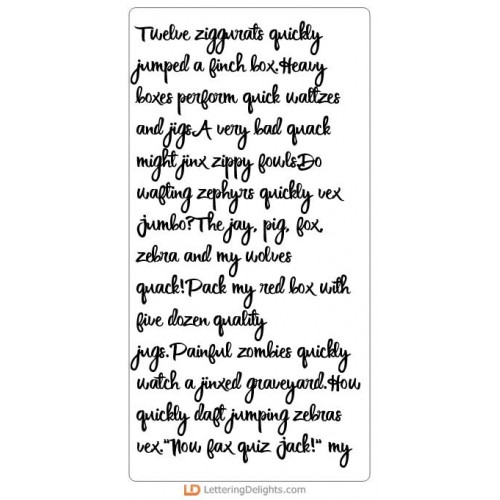 Twelve ziggurats quickly
jumped a finch box.Heavy
boxes perform quick waltzes
and jigs.A very bad quack
might jinx zippy fowls.Do
wafting zephyrs quickly vex
Jumbo?The jay, pig, fox,
zebra and my wolves
quack!Pack my red box with
five dozen quality
jugs.Painful zombies quickly
watch a jinxed graveyard.How
quickly daft jumping zebras
vex."Now fax quiz Jack!" my
LD LetteringDelights.com